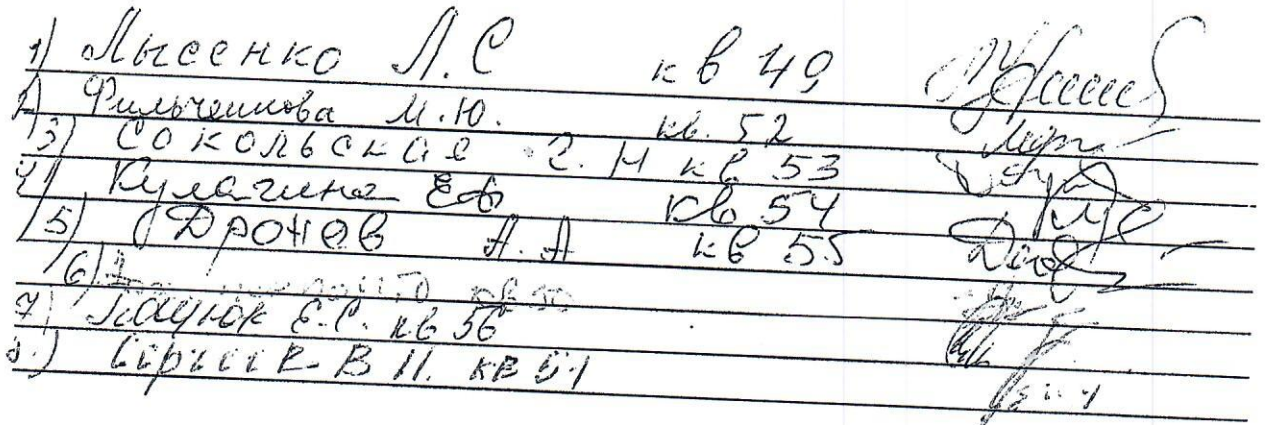 1) Лысенко Л.С кв 49
2) Фильченкова М.Ю. кв. 52
3) Сокольская Г. Н кв 53
4) Кулагина Еф кв 54
5) Дронов А.А кв 55
6) кв 50
7) Е.С. кв 56
8.) Сергеев В П. кв 51